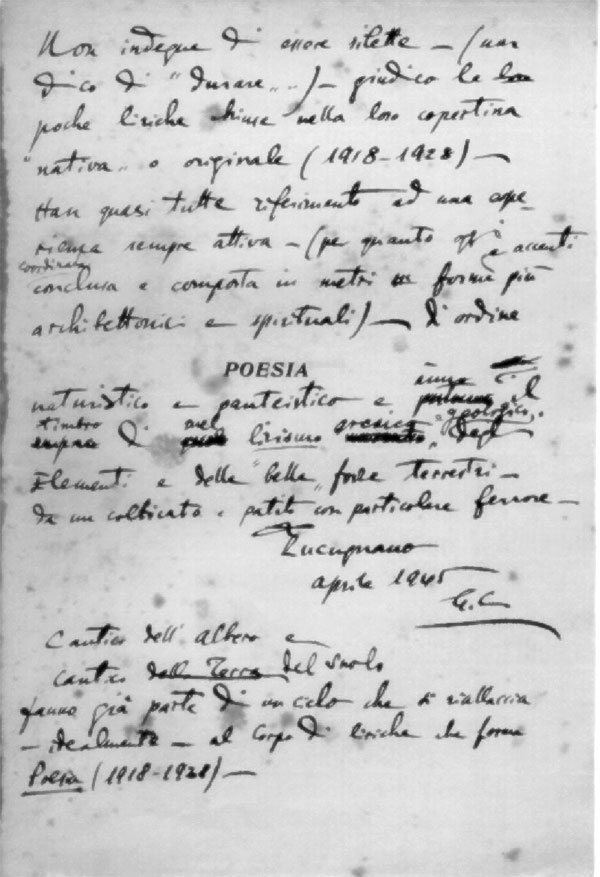 Non indegne di essere rilette — (non
dico di "durare„..) — giudico le
poche liriche chiuse nella loro copertina
"nativa„ o originale (1918-1928) —
Han quasi tutte riferimento ad una espe-
rienza sempre attiva — (per quanto accenti
coordinata
conclusa e composta in metri e forme più
architettonici e spirituali) — di ordine
POESIA
naturistico e panteistico e il
timbro nel "geologico„
di lirismo degli
Elementi e della "bella„ forze terrestri —
da un coltivato e patito con particolare fervore —
Lucugnano
aprile 1945
G.C
Cantico dell'albero e
cantico della Terra del Suolo
fanno già parte di un ciclo che si riallaccia
— idealmente — al corpo di liriche che forma
Poesia (1918-1928) —